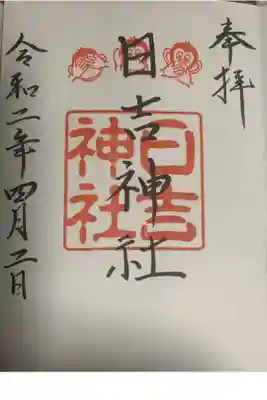 奉拝
日吉神社
日吉
神社
令和二年四月二日